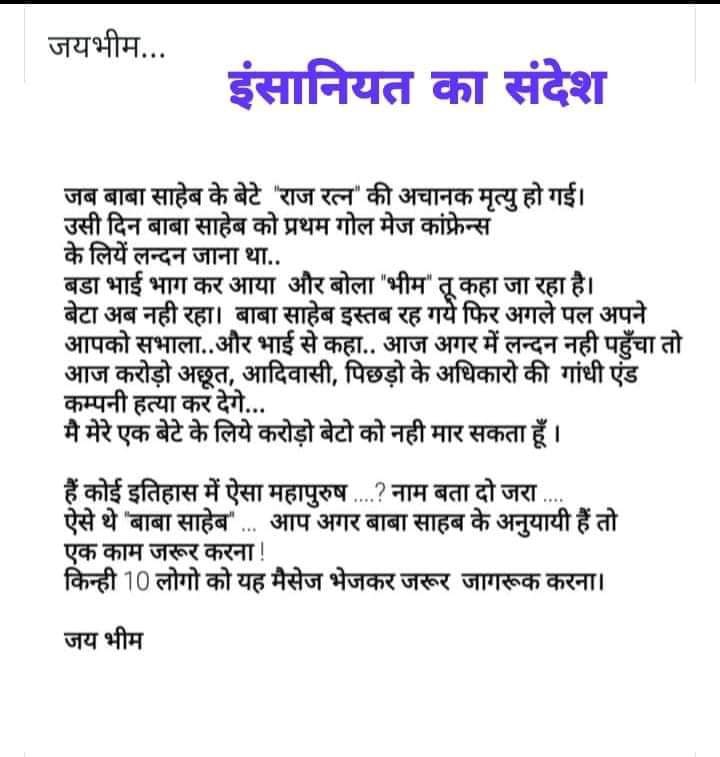 जयभीम...
इंसानियत का संदेश
जब बाबा साहेब के बेटे "राज रत्न" की अचानक मृत्यु हो गई।
उसी दिन बाबा साहेब को प्रथम गोल मेज कांफ्रेन्स
के लियें लन्दन जाना था..
बडा भाई भाग कर आया और बोला "भीम" तू कहा जा रहा है।
बेटा अब नही रहा। बाबा साहेब इस्तब रह गये फिर अगले पल अपने
आपको सभाला..और भाई से कहा.. आज अगर में लन्दन नही पहुँचा तो
आज करोड़ो अछूत, आदिवासी, पिछड़ो के अधिकारो की गांधी एंड
कम्पनी हत्या कर देगे...
मै मेरे एक बेटे के लिये करोड़ो बेटो को नही मार सकता हूँ ।
हैं कोई इतिहास में ऐसा महापुरुष ....? नाम बता दो जरा ....
ऐसे थे "बाबा साहेब" ... आप अगर बाबा साहब के अनुयायी हैं तो
एक काम जरूर करना !
किन्ही 10 लोगो को यह मैसेज भेजकर जरूर जागरूक करना।
जय भीम